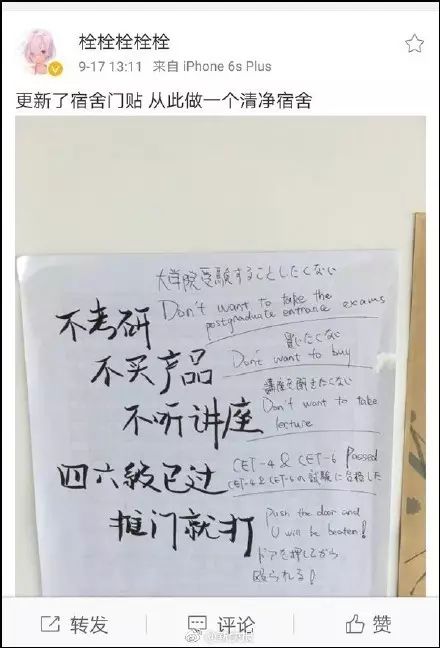 栓栓栓栓栓
9-17 13:11 来自 iPhone 6s Plus
更新了宿舍门贴 从此做一个清净宿舍
大学院受験することしたくない
不考研 Don't want to take the
postgraduate entrance exams
買いたくない
不买产品 Don't want to buy
講座を聞きたくない
不听讲座 Don't want to take
lecture
四六级已过 CET-4 & CET-6 Passed
CET-4 & CET-6の試験に合格した
推门就打 Push the door and
U will be beaten!
ドアを押してから
殴られる!
转发 评论 赞